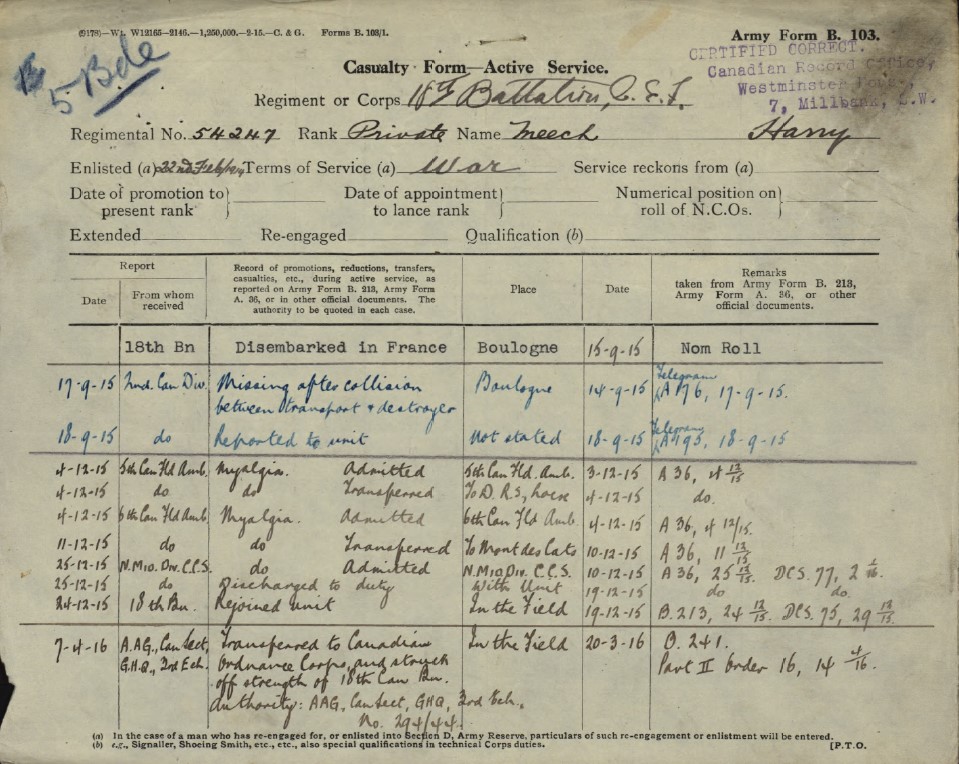 (9178)—Wt. W12165—2146.—1,250,000.—2-15.—C. & G. Forms B. 103/1.
Army Form B. 103.
5 Bde
CERTIFIED CORRECT.
Canadian Record Office,
Westminster House,
7, Millbank, S.W.
Casualty Form—Active Service.
Regiment or Corps 18th Battalion, C.E.F.
Regimental No. 54247 Rank Private Name Meech Harry
Enlisted (a) 22nd Feb/ Terms of Service (a) War Service reckons from (a)
Date of promotion to present rank
Date of appointment to lance rank
Numerical position on roll of N.C.Os.
Extended Re-engaged Qualification (b)
Report
Date
From whom received
Record of promotions, reductions, transfers, casualties, etc., during active service, as reported on Army Form B. 213, Army Form A. 36, or in other official documents. The authority to be quoted in each case.
Place
Date
Remarks taken from Army Form B. 213, Army Form A. 36, or other official documents.
18th Bn Disembarked in France Boulogne 15-9-15 Nom Roll
17-9-15 2nd. Can Div. Missing after collision between transport & destroyer Boulogne 14-9-15 Telegram A 176, 17-9-15.
18-9-15 do Reported to unit Not stated 18-9-15 Telegram A 195, 18-9-15
4-12-15 5th Can Fld Amb. Myalgia. Admitted 5th Can Fld. Amb. 3-12-15 A 36, 4 12/15
4-12-15 do do Transferred To D.R.S, 4-12-15 do.
4-12-15 6th Can Fld Amb. Myalgia. Admitted 6th Can Fld Amb. 4-12-15 A 36, 4 12/15.
11-12-15 do do Transferred To Mont des Cats 10-12-15 A 36, 11 12/15
25-12-15 N. Mid. Div. C.C.S. do Admitted N. Mid Div. C.C.S. 10-12-15 A 36, 25 12/15. DCS. 77, 2 1/16.
25-12-15 do Discharged to duty With Unit 19-12-15 do do.
24-12-15 18th Bn. Rejoined unit In the Field 19-12-15 B. 213, 24 12/15. DCS. 75, 29 12/15.
7-4-16 A.AG, Can Sect, G.H.Q, 3rd Ech. Transferred to Canadian Ordnance Corps, and struck off strength of 18th Can Bn. In the Field 20-3-16 O. 241. Part II Order 16, 14 4/16.
Authority: AAG, Can Sect, GHQ, 3rd Ech., No. 294/44.
(a) In the case of a man who has re-engaged for, or enlisted into Section D, Army Reserve, particulars of such re-engagement or enlistment will be entered.
(b) e.g., Signaller, Shoeing Smith, etc., etc., also special qualifications in technical Corps duties.
[P.T.O.